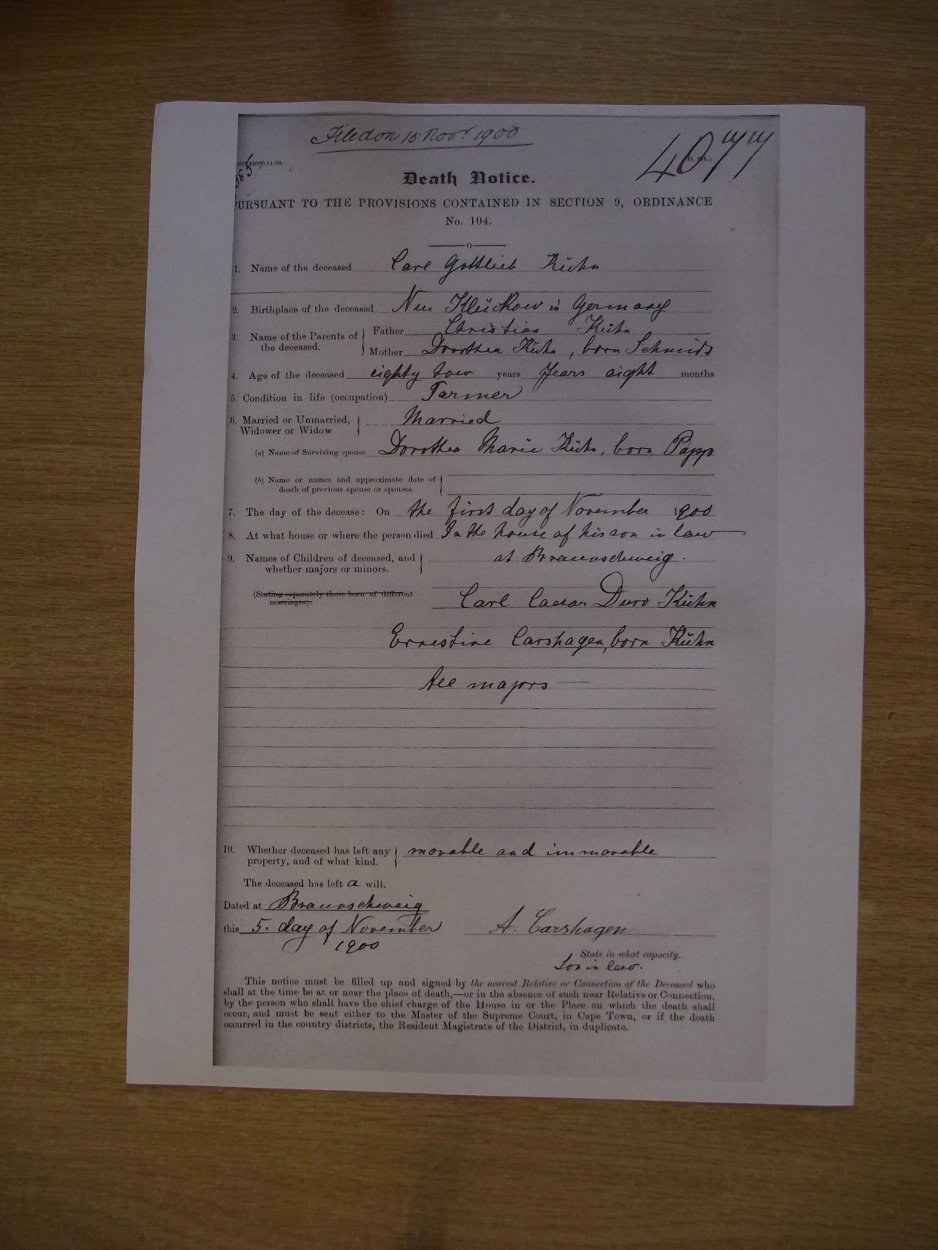 Filed on 15 Novr 1900
4077
Death Notice.
PURSUANT TO THE PROVISIONS CONTAINED IN SECTION 9, ORDINANCE
No. 104.
1. Name of the deceased Carl Gottlieb Kühn
2. Birthplace of the deceased Neu Klückow in Germany
3. Name of the Parents of the deceased. Father Christian Kühn
Mother Dorothea Kühn, born Schmidt
4. Age of the deceased eighty tow years Years eight months
5. Condition in life (occupation) Farmer
6. Married or Unmarried, Widower or Widow Married
(a) Name of Surviving spouse Dorothea Marie Kühn, born Papp
(b) Name or names and approximate date of
death of previous spouse or spouses.
7. The day of the decease: On the first day of November 1900
8. At what house or where the person died In the house of his son in law
9. Names of Children of deceased, and whether majors or minors. at Braunschweig.
(Stating separately those born of different marriages). Carl Caesar Kühn
Ernestine Carshagen, born Kühn
All majors
10. Whether deceased has left any property, and of what kind. movable and immovable
The deceased has left a will.
Dated at Braunschweig
this 5. day of November A. Carshagen
1900
State in what capacity.
Son in law.
This notice must be filled up and signed by the nearest Relative or Connection of the Deceased who
shall at the time be at or near the place of death,—or in the absence of such near Relative or Connection,
by the person who shall have the chief charge of the House in or the Place on which the death shall
occur, and must be sent either to the Master of the Supreme Court, in Cape Town, or if the death
occurred in the country districts, the Resident Magistrate of the District, in duplicate.